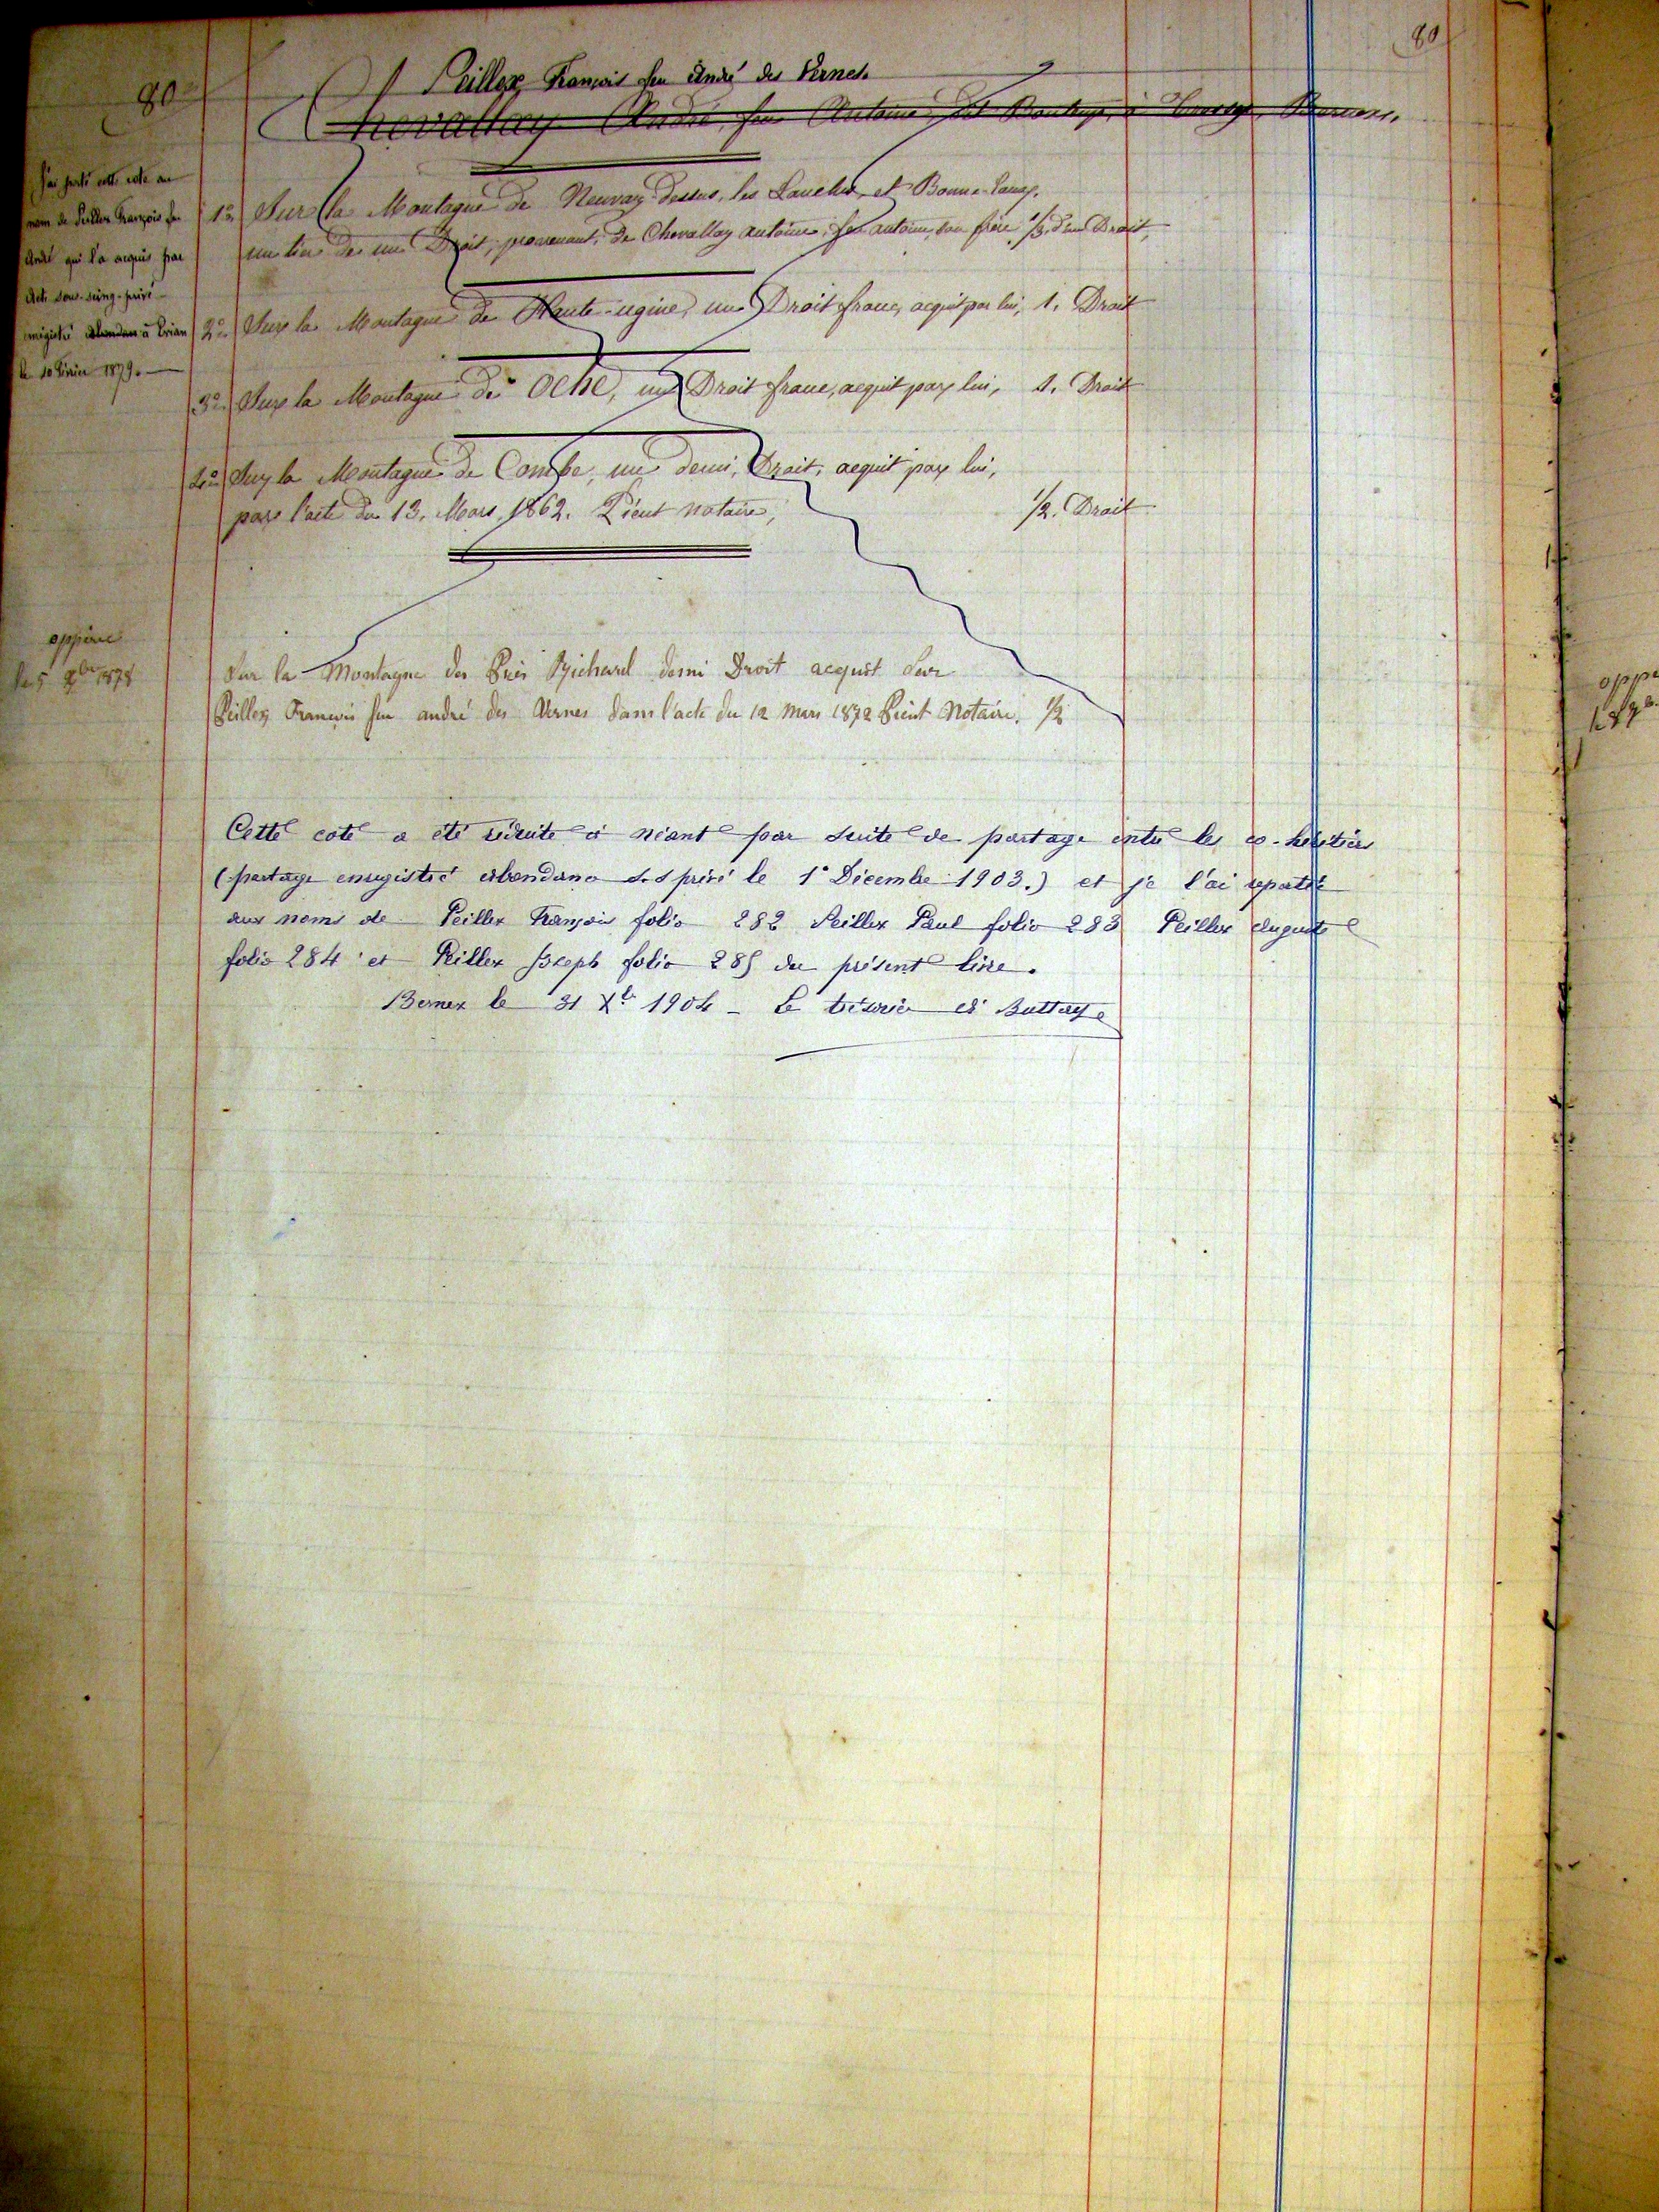 80
80
Peillex François feu André des Vernes
Chevallay André, feu Antoine, à Bernex.
J'ai porté cette cote au
nom de Peillex François feu
André qui l'a acquis par
Acte sous-seing-privé
enregistré Abondance à Evian
le 10 Février 1879.
1º Sur la Montagne de Neuvaz Dessus, les Lanches, et Bonne-Eaux.
un tiers de un Droit, provenant, de Chevallay Antoine, feu antoine, son frère, 1/3. d'un Droit,
2º Sur la Montagne de Haute-ugine, un Droit franc, acquit par lui, 1. Droit
3º Sur la Montagne de Oche, un Droit franc, acquit par lui, 1. Droit
4º Sur la Montagne de Combe, un demi, Droit, acquit par lui,
par l'acte du 13. Mars, 1862. Piént notaire, 1/2. Droit
le 5 9bre 1878
Sur la Montagne des Près Richard demi Droit acquit sur
Peillex François feu andré des Vernes dans l'acte du 12 Mars 1872 Piént Notaire. 1/2
Cette cote a été réduite à néant par suite de partage entre les co-héritiers
(partage enregistré abondance s.s privé le 1º Décembre 1903.) et je l'ai reportée
aux noms de Peillex François folio 282 Peillex Paul folio 283 Peillex Auguste
folio 284 et Peillex Joseph folio 285 du présent livre.
Bernex le 31 Xbre 1904 - Le trésorier Buttay